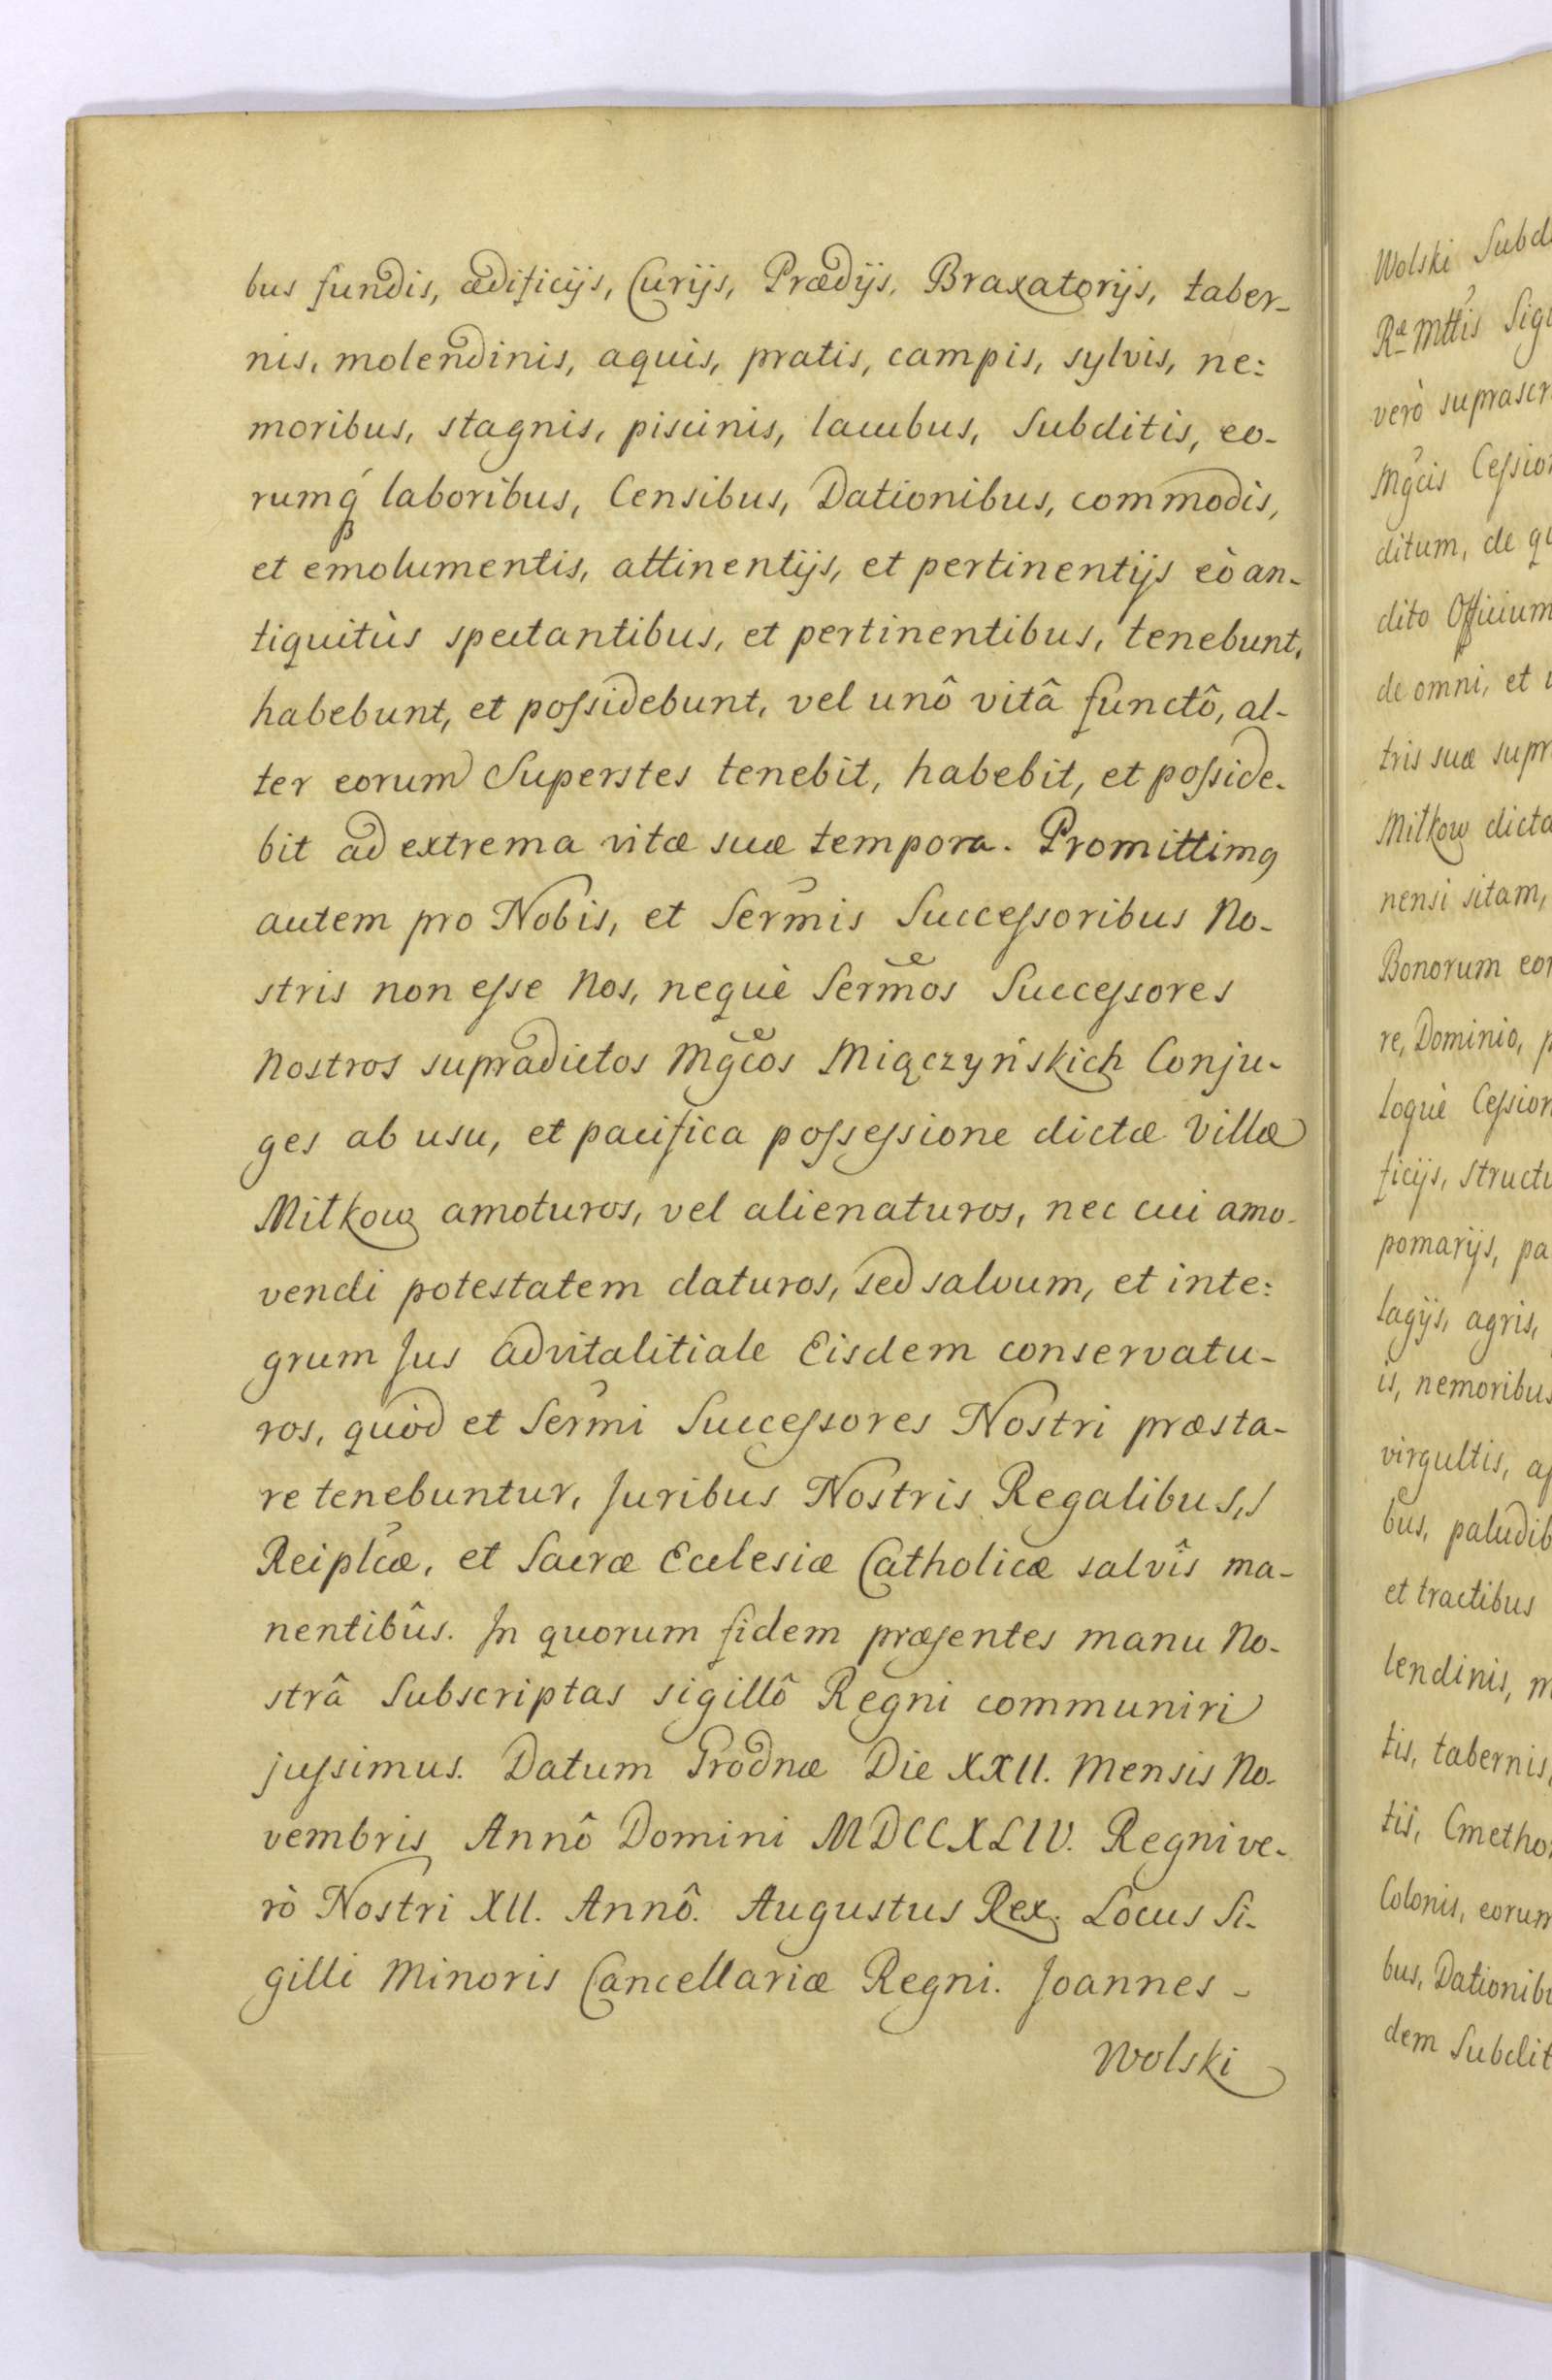 bus fundis, ædificijs, Curijs, Prædijs, Braxatorijs, taber-
nis, molendinis, aquis, pratis, campis, sylvis, ne:
moribus, stagnis, piscinis, lacubus, Subditis, eo-
rumq́ laboribus, Censibus, Dationibus, commodis,
et emolumentis, attinentijs, et pertinentijs eò an-
tiquitùs spectantibus, et pertinentibus, tenebunt,
habebunt, et possidebunt, vel unô vitâ functô, al-
ter eorum Superstes tenebit, habebit, et posside-
bit ad extrema vitæ suæ tempora. Promittimq
autem pro Nobis, et Sermis Successoribus No-
stris non esse Nos, nequè Sermos Successores
Nostros supradictos Mgcos Miączyńskich Conju-
ges ab usu, et pacifica possessione dictæ Villæ
Mitkow amoturos, vel alienaturos, nec cui amo-
vendi potestatem daturos, sed salvum, et inte:
grum Jus advitalitiale Eisdem conservatu-
ros, quòd et Sermi Successores Nostri præsta-
re tenebuntur, Juribus Nostris Regalibus,
Reiplcæ, et Sacræ Ecclesiæ Catholicæ salvîs ma-
nentibûs. In quorum fidem præsentes manu No-
strâ Subscriptas sigillô Regni communiri
jussimus. Datum Grodnæ Die XXII. Mensis No-
vembris Annô Domini MDCCXLIV. Regni ve-
rò Nostri XII. Annô. Augustus Rex. Locus Si-
gilli Minoris Cancellariæ Regni. Joannes -
Wolski
Wolski Subd
Ræ Mttis Sigi
verò suprascr
Mgcis Cession
ditum, de qu
dito Officium
de omni, et
tris suæ supr
Mitkow dicta
nensi sitam,
Bonorum eor
re, Dominio, p
loquè Cession
ficijs, structu
pomarijs, pa
lagijs, agris,
is, nemoribus
virgultis, a
bus, paludib
et tractibus
lendinis, m
tis, tabernis,
tis, Cmetho
Colonis, eorum
bus, Dationibu
dem Subdit